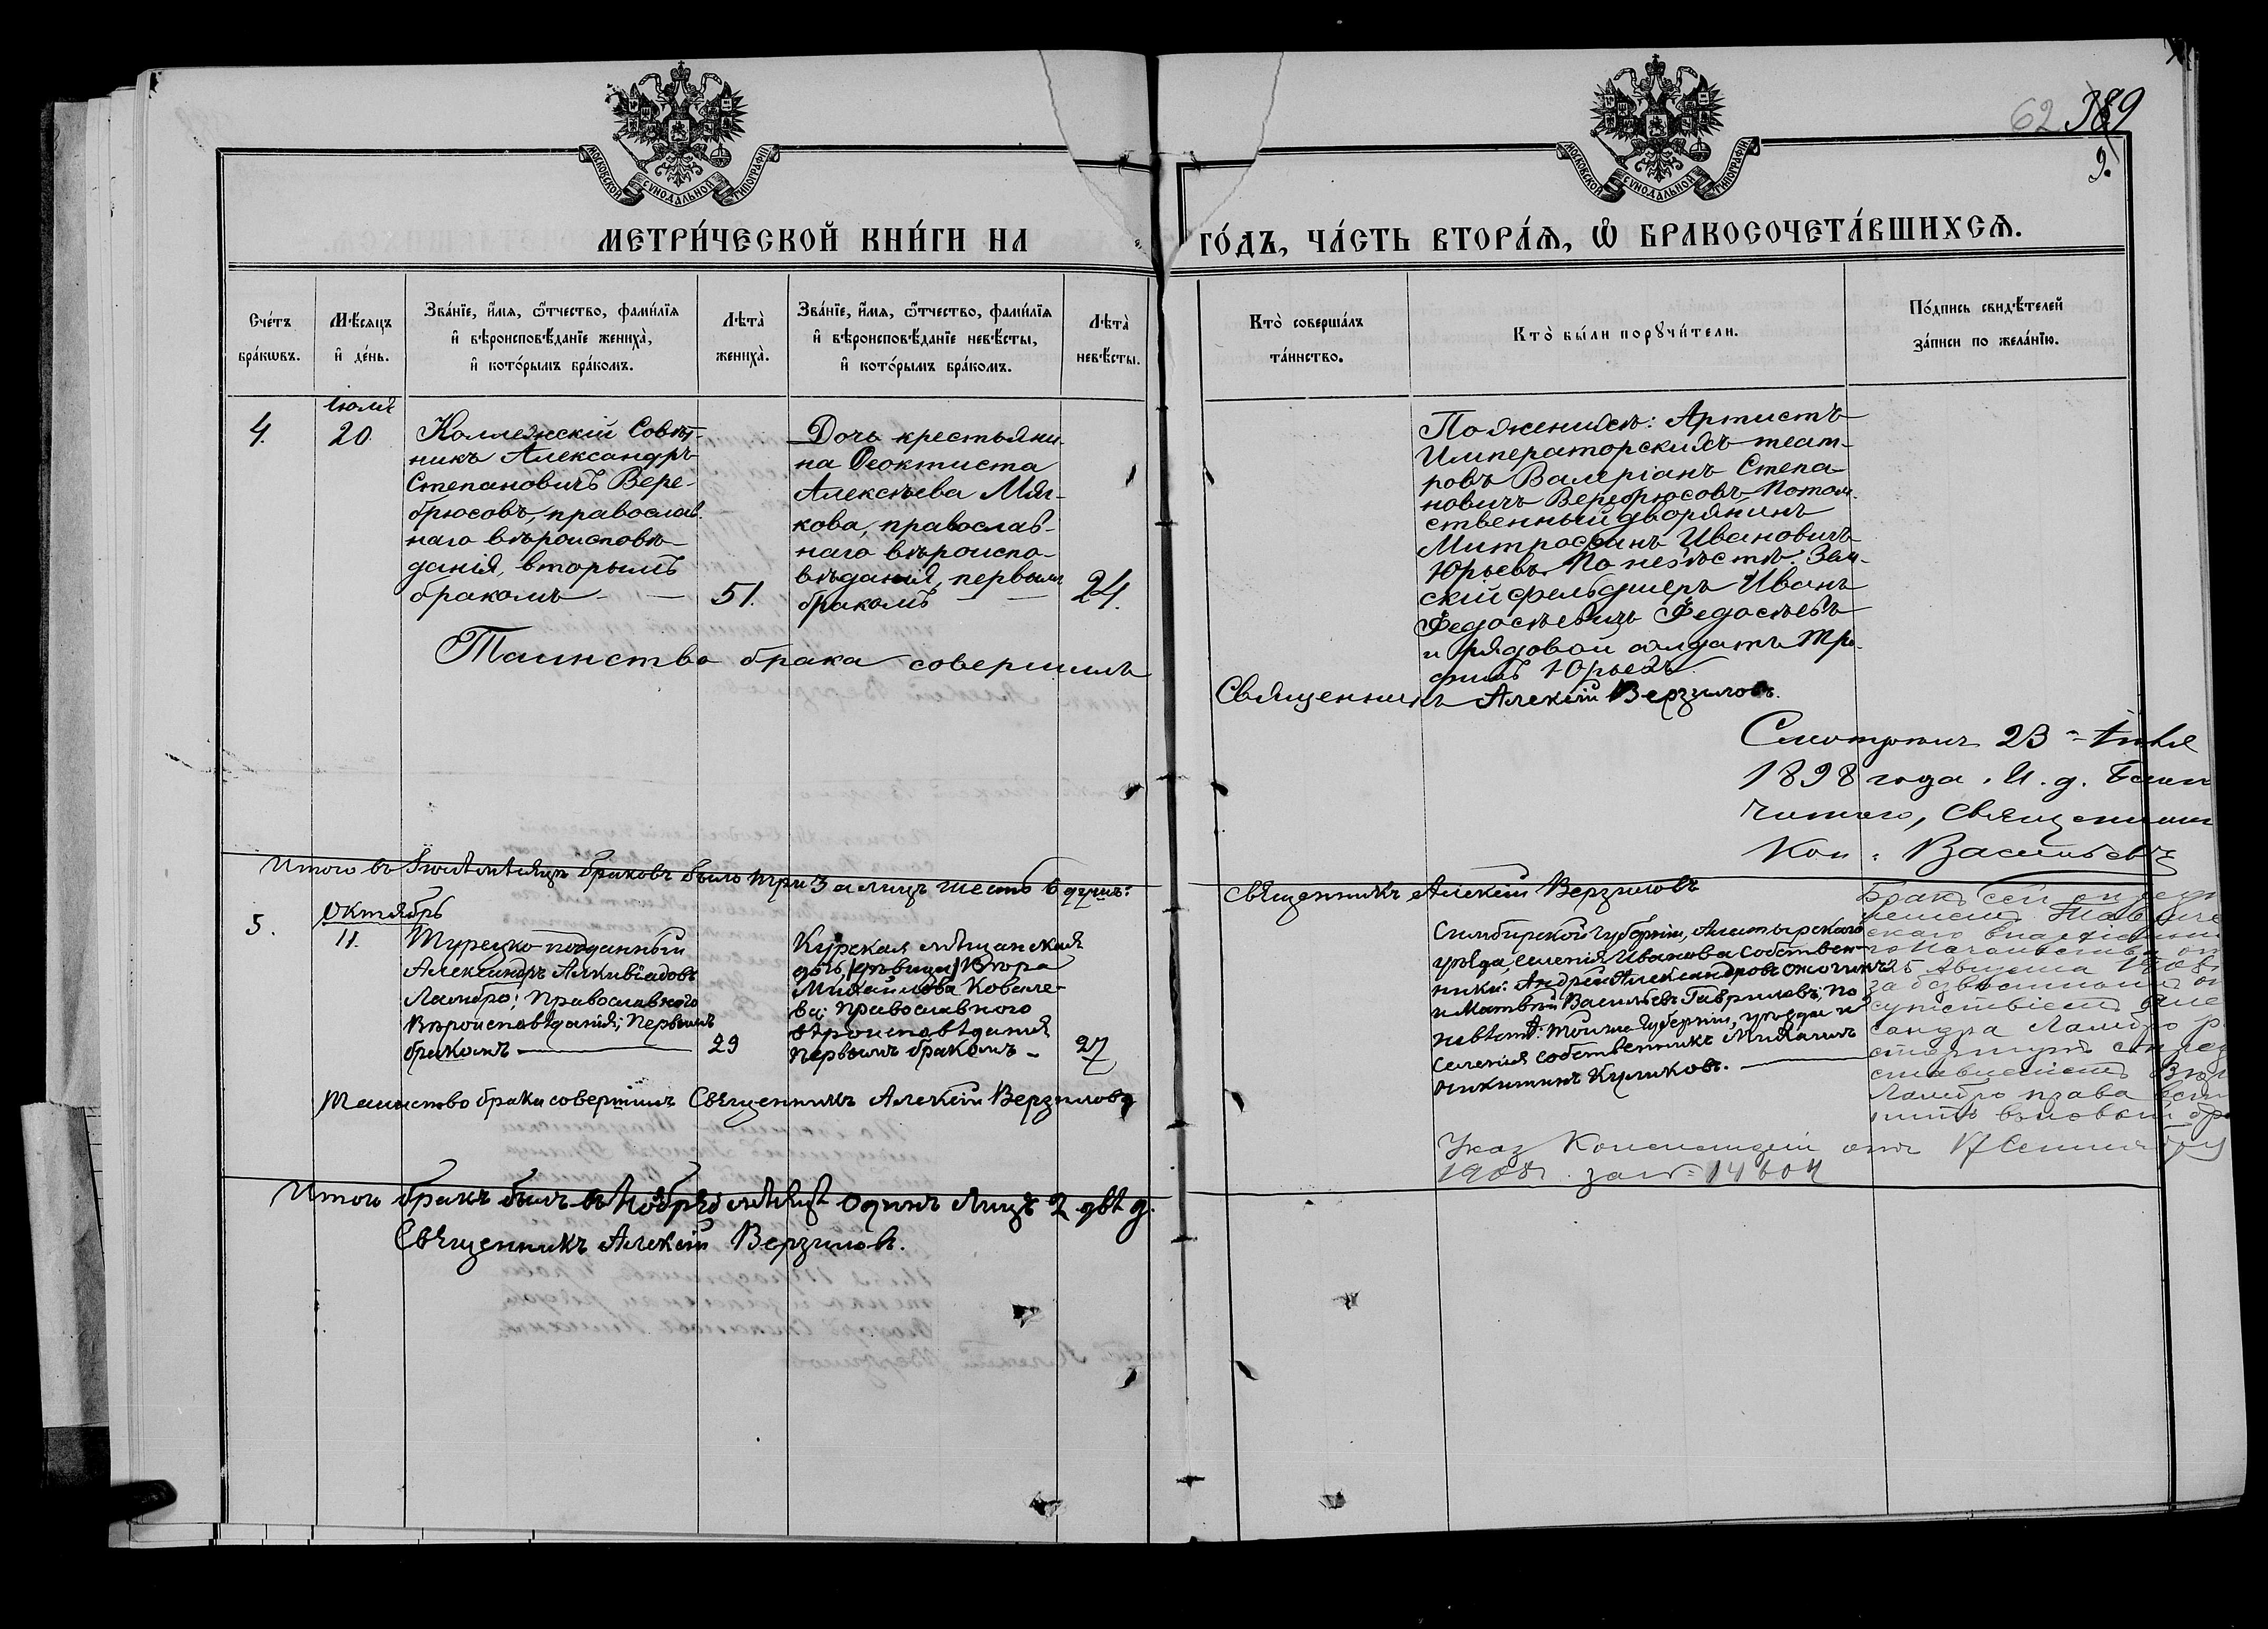 МОСКОВСКОЙ СУНОДАЛЬНОЙ ТИПОГРАФІИ
МОСКОВСКОЙ СУНОДАЛЬНОЙ ТИПОГРАФІИ
62 389
9.
МЕТРИ́ЧЕСКОЙ КНИ́ГИ НА
ГО́ДЪ, ЧА́СТЬ ВТОРА́Ѧ, Ѡ҆ БРАКОСОЧЕТА́ВШИХСѦ.
Сче́тъ
бра́кѡвъ.
Мѣ́сяцъ
и҆ де́нь.
Зва́нїе, и҆́мя, ѻ҆́тчество, фами́лїя
и҆ вѣроисповѣ́данїе жениха̀,
и҆ кото́рымъ бра́комъ.
Лѣта̀
жениха̀.
Зва́нїе, и҆́мя, ѻ҆́тчество, фами́лїя
и҆ вѣроисповѣ́данїе невѣ́сты,
и҆ кото́рымъ бра́комъ.
Лѣта̀
невѣ́сты.
Кто̀ соверша́лъ
та́инство.
Кто̀ бы́ли порꙋчи́тели.
По́дпись свидѣ́телей
за́писи по жела́нїю.
4.
Іюля
20.
Коллежскій Совѣт-
никъ Александръ
Степановичъ Вере-
брюсовъ, православ-
наго вѣроисповѣ-
данія, вторымъ
бракомъ
51.
Дочь крестьяни-
на Ѳеоктиста
Алексѣева Мяг-
кова, православ-
наго вѣроиспо-
вѣданія, первымъ
бракомъ
24.
По женихѣ: Артистъ
Императорскихъ теат-
ровъ Валеріанъ Степа-
новичъ Веребрюсовъ Потом-
ственный дворянинъ
Митрофанъ Ивановичъ
Юрьевъ. По невѣстѣ: Зем-
скій фельдшеръ Иванъ
Федосѣевичъ Федосѣевъ
и рядовой солдатъ Тро-
фимъ Юрьевъ
Таинство брака совершилъ
Священникъ Алексій Верзиловъ.
Смотрилъ 23 Іюля
1898 года. И. д. Благо
чиннаго, Священникъ
Кон. Васильевъ
Итого въ Іюлѣ мѣсяцѣ браковъ было три 3 а лицъ шесть 6 душъ:
Священникъ Алексій Верзиловъ
5.
Октябрь
11.
Турецко-подданный
Александръ Алкивіадовъ
Ламбро; Православнаго
Вѣроисповѣданія; Первымъ
бракомъ
29
Курская мѣщанская
дочь (дѣвица) Вѣра
Михайлова Ковале-
ва; Православнаго
вѣроисповѣданія
первымъ бракомъ
27
Симбирской Губерніи, Алатырскаго
уѣзда, селенія Иванова Собствен-
ники: Андрей Александровъ
и Матвѣй Васильевъ Гавриловъ; по
невѣстѣ: той же Губерніи, уѣзда и
селенія собственникъ Михаилъ
Никитинъ Куликовъ.
Бракъ сей опредѣ
леніемъ Тавриче
скаго Епархіальна
го Начальства отъ
25 Августа 1908
за безвѣстнымъ от
сутствіемъ Алек
сандра Ламбро р
сторгнутъ съ пред
ставленіемъ Вѣрѣ
Ламбро права всту
пить въ новый бра
Таинство брака совершилъ Священникъ Алексій Верзиловъ
Указ Консисторіи отъ 17 Сентября
1908 г. за № 14604
Итого бракъ былъ въ Ноябрѣ мѣсяцѣ Одинъ Лицъ 2 двѣ д.
Священникъ Алексій Верзиловъ.